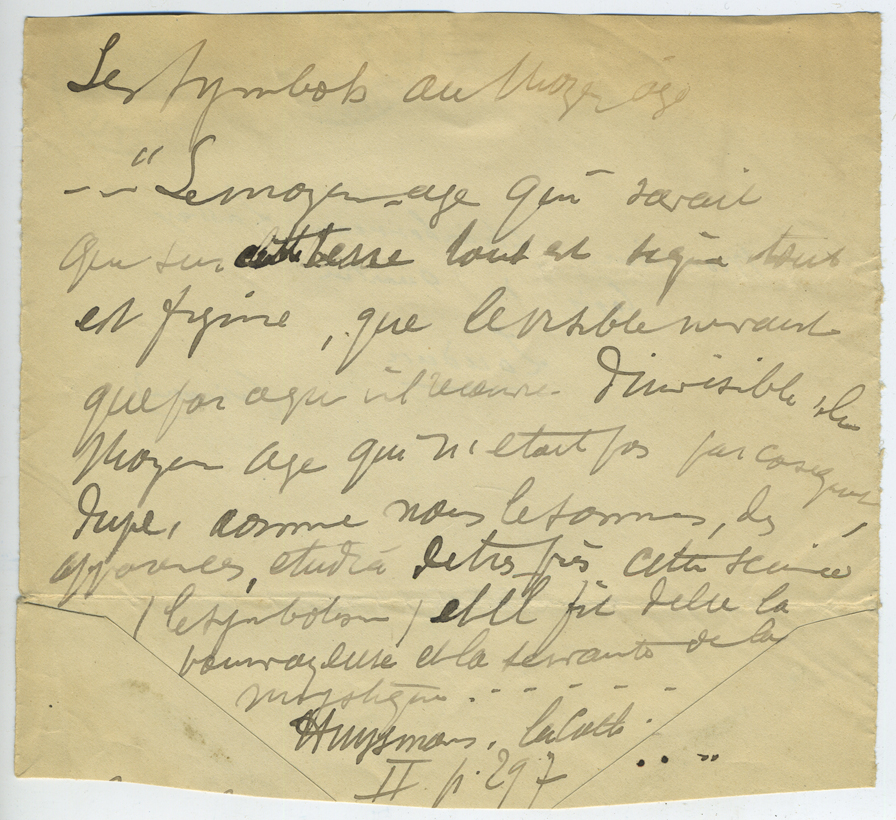 Les symbols au Moyen âge
-- "Le moyen-age qui savait
que sur cette terre tout est signe tout
est figure, que le visible ne vaut
que par ce qu'il recouvre D'invisible, le
Moyen age qui n'etait pas par conséquent
Dupe, comme nous le sommes, des
apparences, etudia de tres près cette science
(le symbolisme) et Il fit d'elle la
pourvoyeuse et la servante de la
mystique . - - - - -
Huysmans, la Cath.
II p. 297 . . "